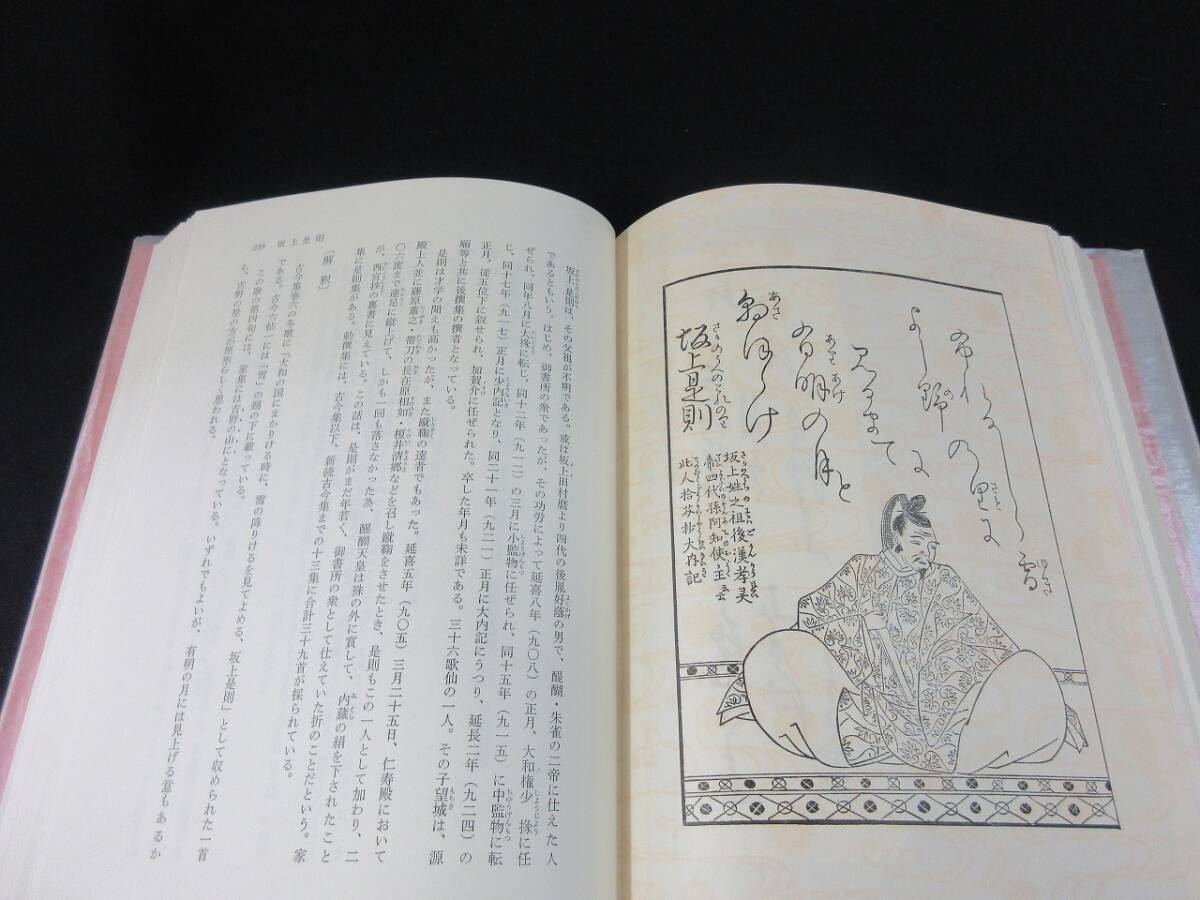 坂上是則
朝ほらけ
有明の月と
見るまてに
よし野の里に
ふれるしら雪
坂上姓之祖後漢孝灵
帝四代孫阿知使主云
此人拾芥抄大内記
坂上是則は、その父祖が不明である。或は坂上田村麿より四代の後胤好蔭の男で、醍醐・朱雀の二帝に仕えた人
であるともいう。はじめ、御書所の衆であったが、その功労によって延喜八年（九〇八）の正月、大和権少掾に任
ぜられ、同年八月に大掾に転じ、同十二年（九一二）の三月に小監物に任ぜられ、同十五年（九一五）に中監物に転
じ、同十七年（九一七）正月に少内記となり、同二十一年（九二一）正月に大内記にうつり、延長二年（九二四）の
正月、従五位下に叙せられ、加賀介に任ぜられた。卒した年月も未詳である。三十六歌仙の一人。その子望城は、源
順等と共に後撰集の撰者となっている。
是則は才学の聞えも高かったが、また蹴鞠の達者でもあった。延喜五年（九〇五）三月二十五日、仁寿殿において
殿上人並に藤原董之・帯刀の長在原相如・榎井清郷などを召し蹴鞠をさせたとき、是則もこの一人として加わり、二
〇六度まで遠足に蹴上げて、しかも一回も落さなかった為、醍醐天皇は殊の外に賞して、内蔵の絹を下されたこと
が、西宮抄の裏書に見えている。この話は、是則がまだ年若く、御書所の衆として仕えていた折のことだという。家
集に是則集がある。勅撰集には、古今集以下、新続古今集までの十三集に合計三十九首が採られている。
〔解釈〕
古今集巻六の冬歌に「大和の国にまかりける時に、雪の降りけるを見てよめる、坂上是則」として収められた一首
である。古今六帖には「雪」の題の下に載っている。
この歌の第四句には、家集には吉野の山にとなっている。いずれでもよいが、有明の月には見上げる意もあるか
ら、吉野の里の方が原形らしく思われる。
239 坂上是則